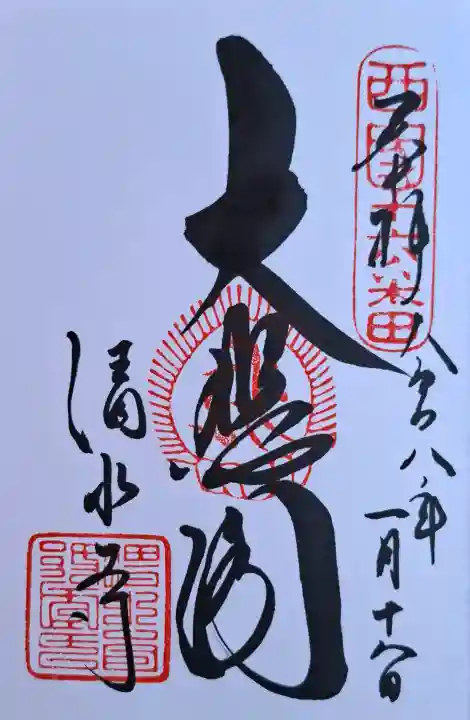 西國十六番
奉拝 令和八年一月十六日
大悲閣
清水寺